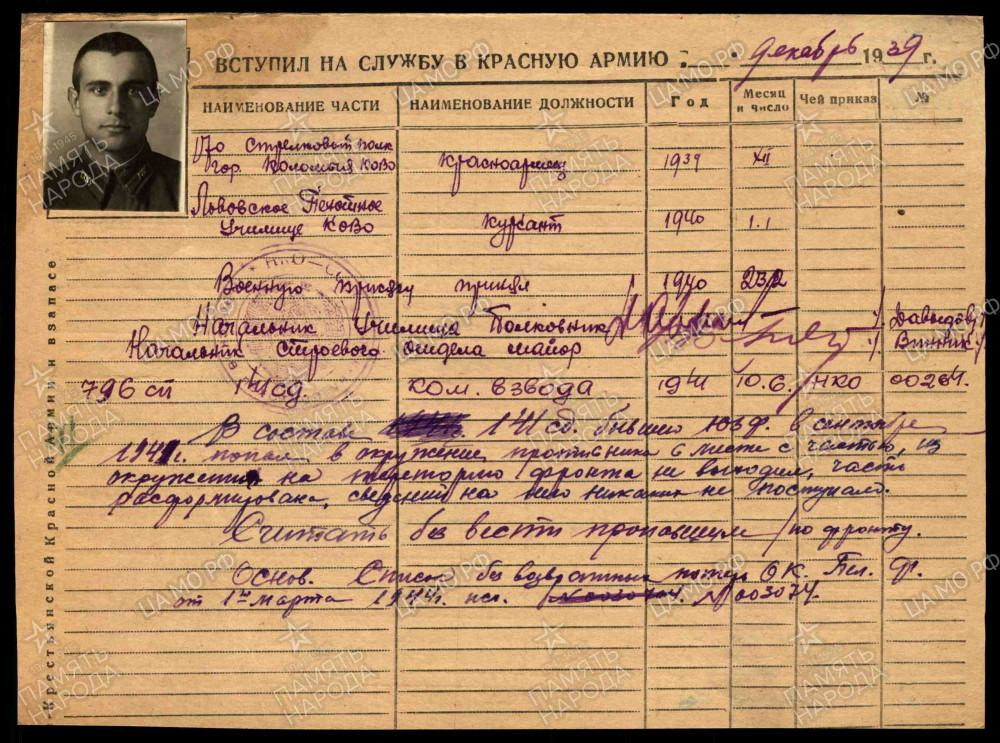 ВСТУПИЛ НА СЛУЖБУ В КРАСНУЮ АРМИЮ декабрь 1939 г.
НАИМЕНОВАНИЕ ЧАСТИ НАИМЕНОВАНИЕ ДОЛЖНОСТИ Год Месяц и число Чей приказ №
170 стрелковый полк
гор. Коломыя КОВО Красноармеец 1939 XII
Львовское Пехотное
Училище КОВО курсант 1940 1.1
Военную присягу принял 1940 23/2
Начальник Училища Полковник /Давыдов/
Начальник строевого отдела майор /Винник/
796 сп 141 сд. ком. взвода 1941 10.6. НКО 00264.
В составе 141 сд. бывшего ЮЗФ. в сентябре
1941г. попал в окружение противника вместе с частью, из
окружения на территорию фронта не выходил, часть
расформирована, сведений на него никаких не поступало.
Считать без вести пропавшим /по фронту.
Основ. Список безвозвратных потерь ОК.
от 1го марта 1944г. исх. №003074.
Крестьянской Красной Армии и в запасе
ПАМЯТЬ НАРОДА
ЦАМО РФ